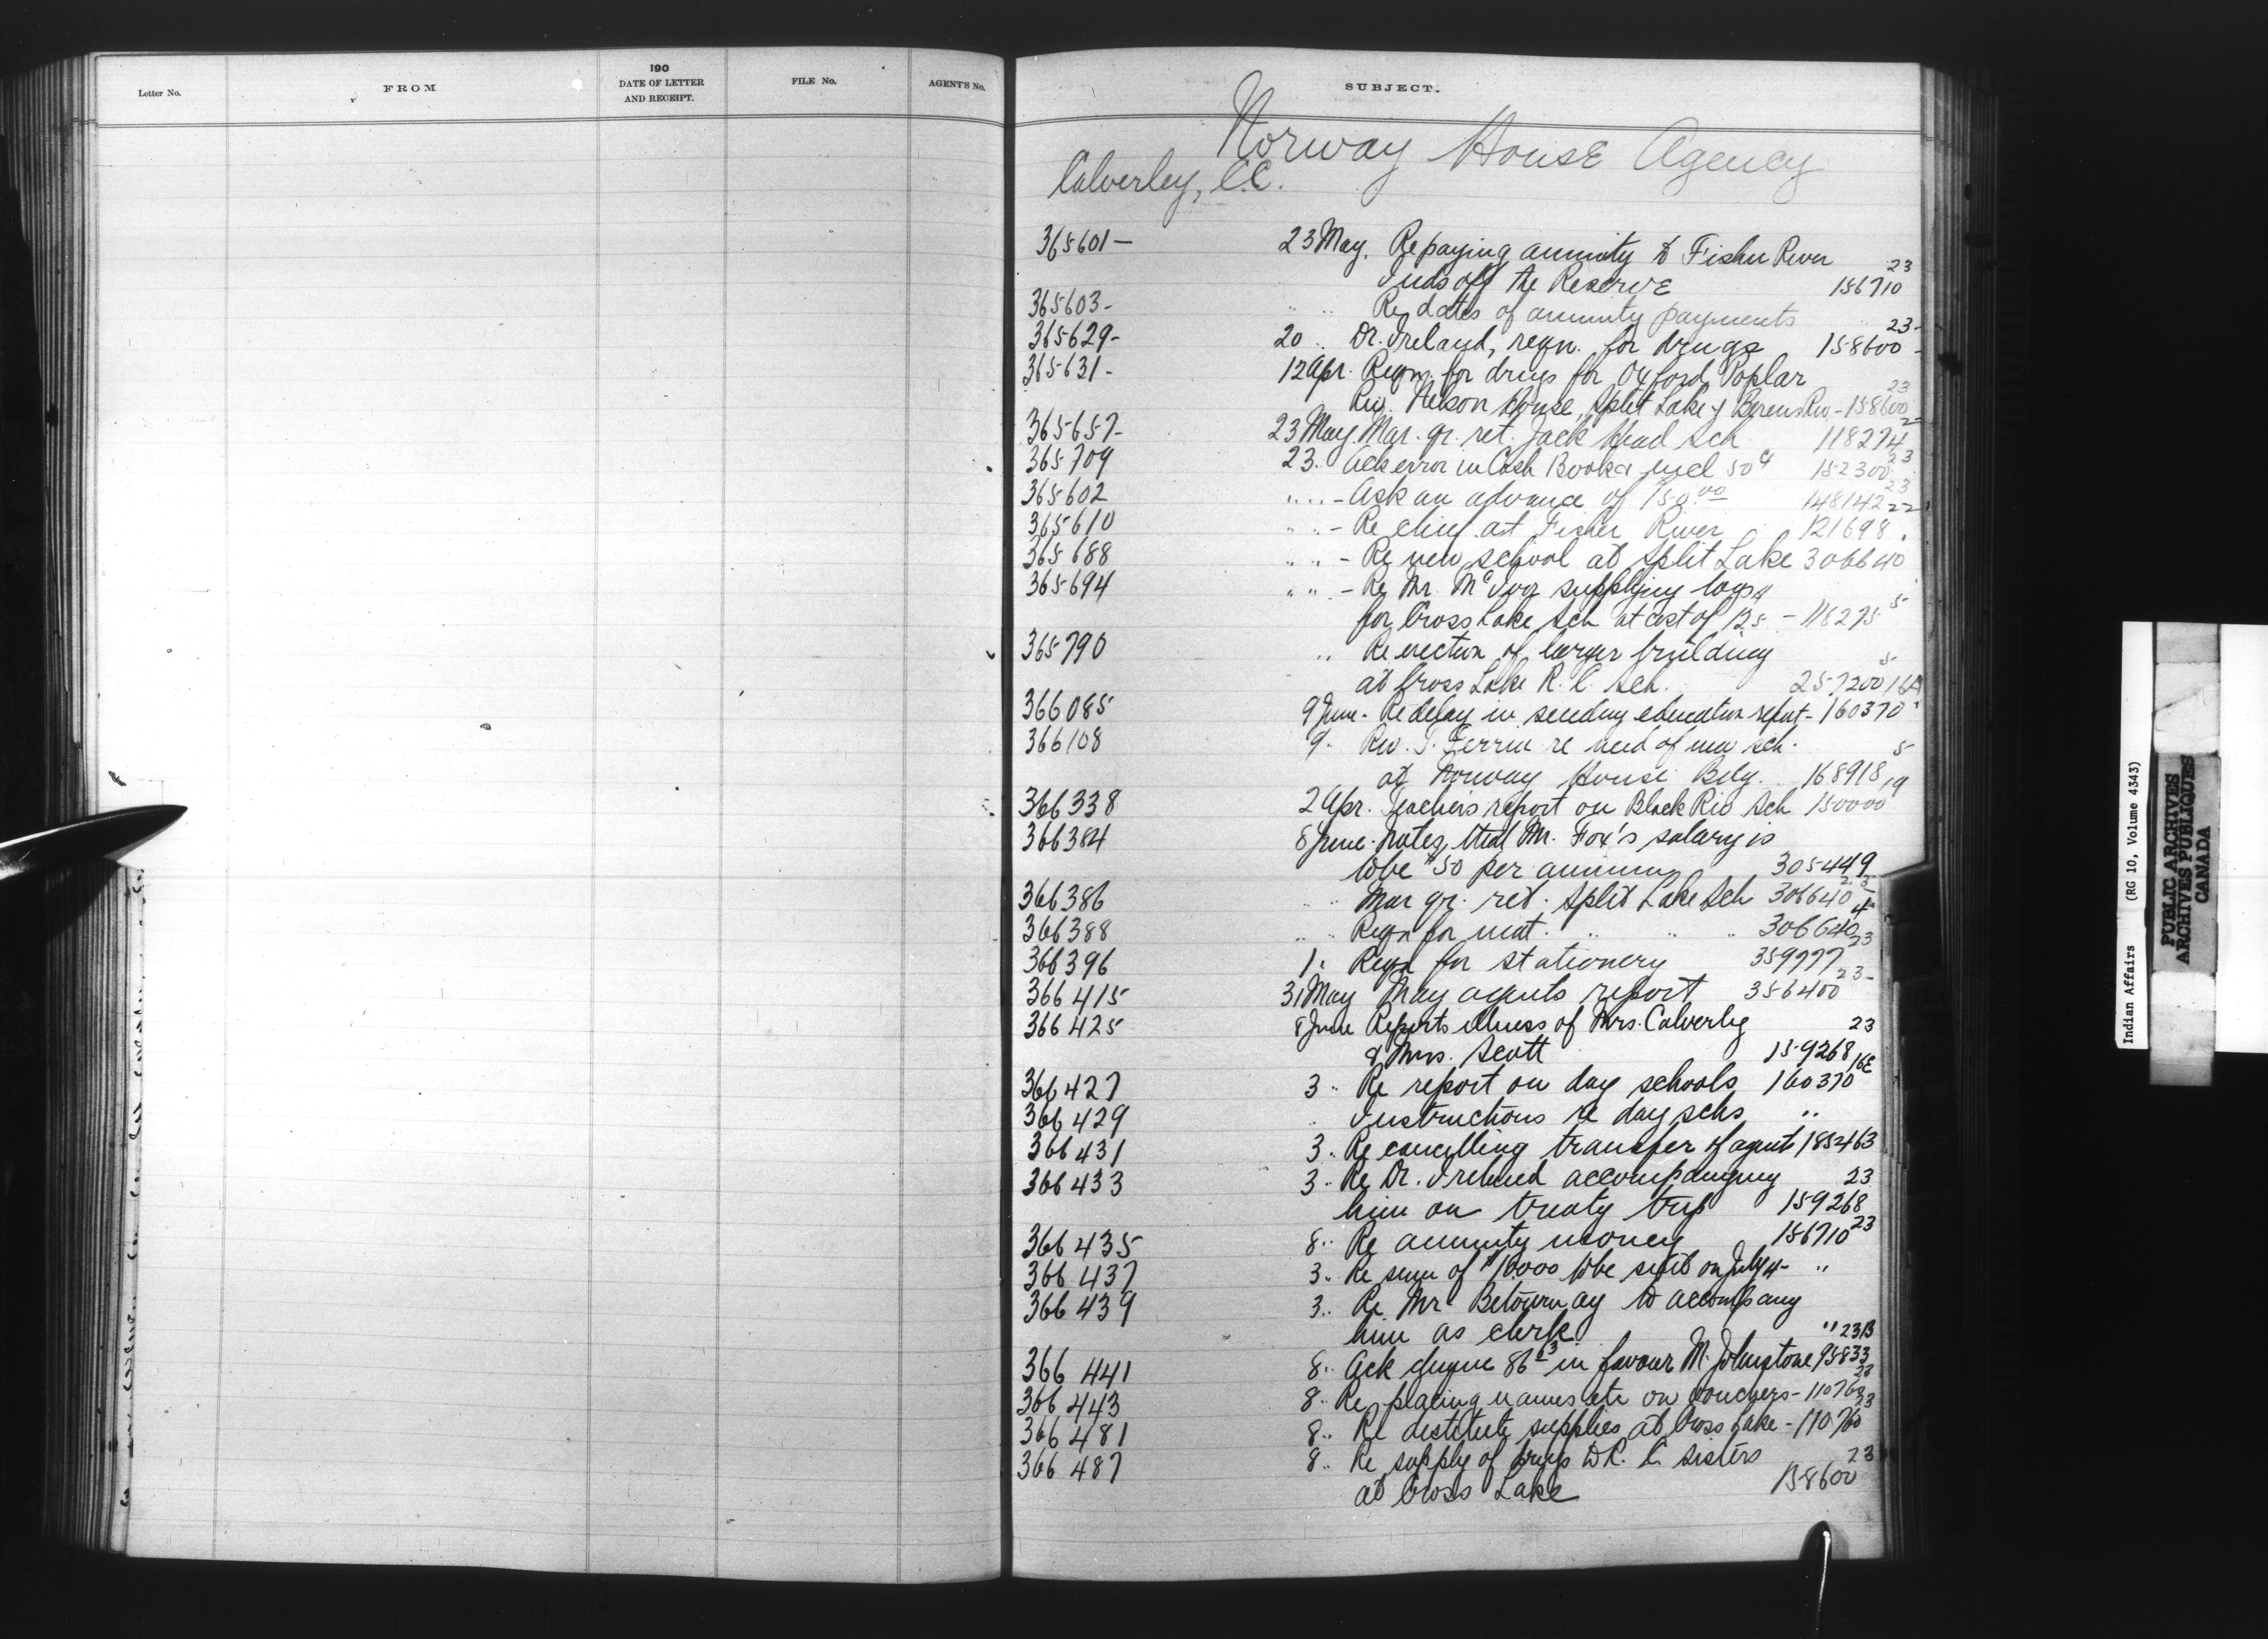 190
Letter No. FROM DATE OF LETTER AND RECEIPT. FILE No. AGENT'S No.
SUBJECT.
Norway House Agency
Calverley, C.C.
365601 — 23 May. Re paying annuity to Fisher River 23
Inds off the Reserve 156710
365603 - " " Re dates of annuity payments
365629 - 20 " Dr. Ireland, reqn. for drugs 158600 23 -
365631 - 12 Apr. Reqn. for drugs for Oxford, Poplar
Riv. Nelson House, Split Lake & Berens Riv - 158600 23
365657 - 23 May. Mar. qr. ret. Jack Head Sch 118274 2
365709 23 " Ack error in Cash Book & incl 50¢ 152300 23
365602 " " - Ask an advance of 150.00 148142 23
365610 " " - Re chief at Fisher River 121698 22
365688 " " - Re new school at Split Lake 306640
365694 " " - Re Mr. McIvor supplying logs
for Cross Lake Sch at cost of 125 - 118275 5
365790 " Re erection of larger building
at Cross Lake R.C. Sch. 257200 5
366085 9 June - Re delay in sending education report - 160370 16A
366108 9 " Rev. J. Ferrier re need of new sch.
at Norway House Bdg. 168918 5
366338 2 Apr. Teacher's report on Black Riv Sch 150000 19
366384 8 June. Notes that Mr. Fox's salary is
to be $50 per annum 305449
366386 " " Mar qr. ret. Split Lake Sch 306640 2
366388 " " Reqn for mat. " " " 306640 4
366396 1 " Reqn for stationery 359777 23
366415 31 May May agents report 356400 23 -
366425 8 June Reports illness of Mrs. Calverley 23
& Mrs. Scott 159268
366427 3 " Re report on day schools 160370 16E
366429 " Instructions re day schs "
366431 3 " Re cancelling transfer of agent 185463
366433 3 " Re Dr. Ireland accompanying 23
him on treaty trip 159268
366435 8 " Re annuity money 156710 23
366437 3 " Re sum of $10000 to be sent on July 4 - "
366439 3 " Re Mr. Betournay to accompany
him as clerk "
366441 8 " Ack cheque 86 63 in favour M. Johnstone 95833 23B
366443 8 " Re placing names etc on vouchers - 110760 23
366481 8 " Re destitute supplies at Cross Lake - 110760 23
366487 8 " Re supply of drugs to R.C. Sisters 23
at Cross Lake 158600
Indian Affairs (RG 10, Volume 4343)
PUBLIC ARCHIVES
ARCHIVES PUBLIQUES
CANADA